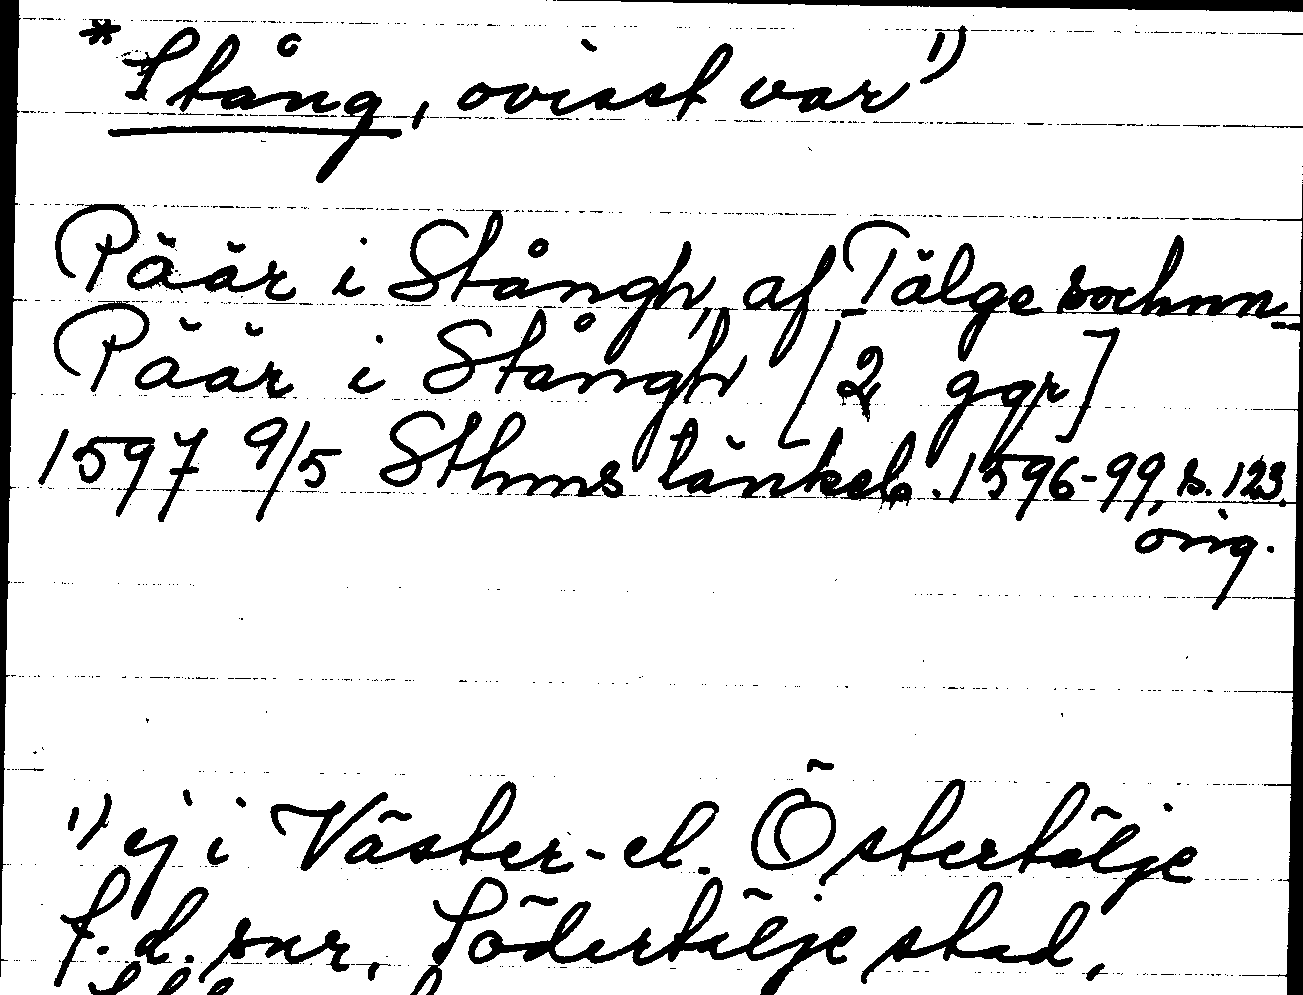 * Stång, ovisst var 1)
Päär i Stångh, af Tälge sochnn
Päär i Stångh [2 ggr]
1597 9/5 Sthms tänkeb. 1596-99, s. 123.
orig.
1) ej i Väster- el. Östertälje
f.d. snr, Södertälje stad,